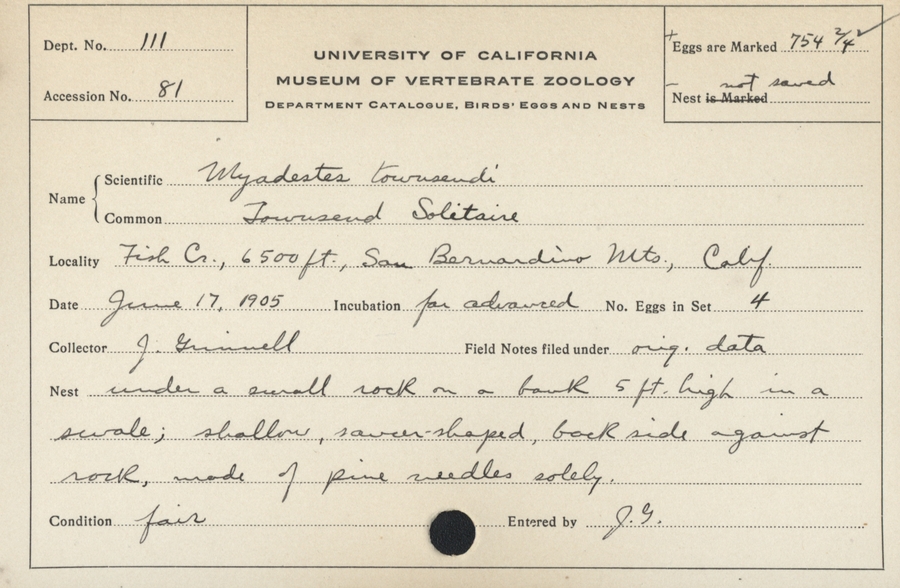 Dept. No. 111
Accession No. 81
UNIVERSITY OF CALIFORNIA
MUSEUM OF VERTEBRATE ZOOLOGY
DEPARTMENT CATALOGUE, BIRDS' EGGS AND NESTS
+ Eggs are Marked 754 2/4 ✓
– Nest is Marked not saved
Name { Scientific Myadestes townsendi
Common Townsend Solitaire
Locality Fish Cr., 6500 ft., San Bernardino Mts., Calif.
Date June 17, 1905 Incubation far advanced No. Eggs in Set 4
Collector J. Grinnell Field Notes filed under orig. data
Nest under a small rock on a bank 5 ft. high in a
swale; shallow, saucer-shaped, back side against
rock, made of pine needles solely.
Condition fair Entered by J.G.